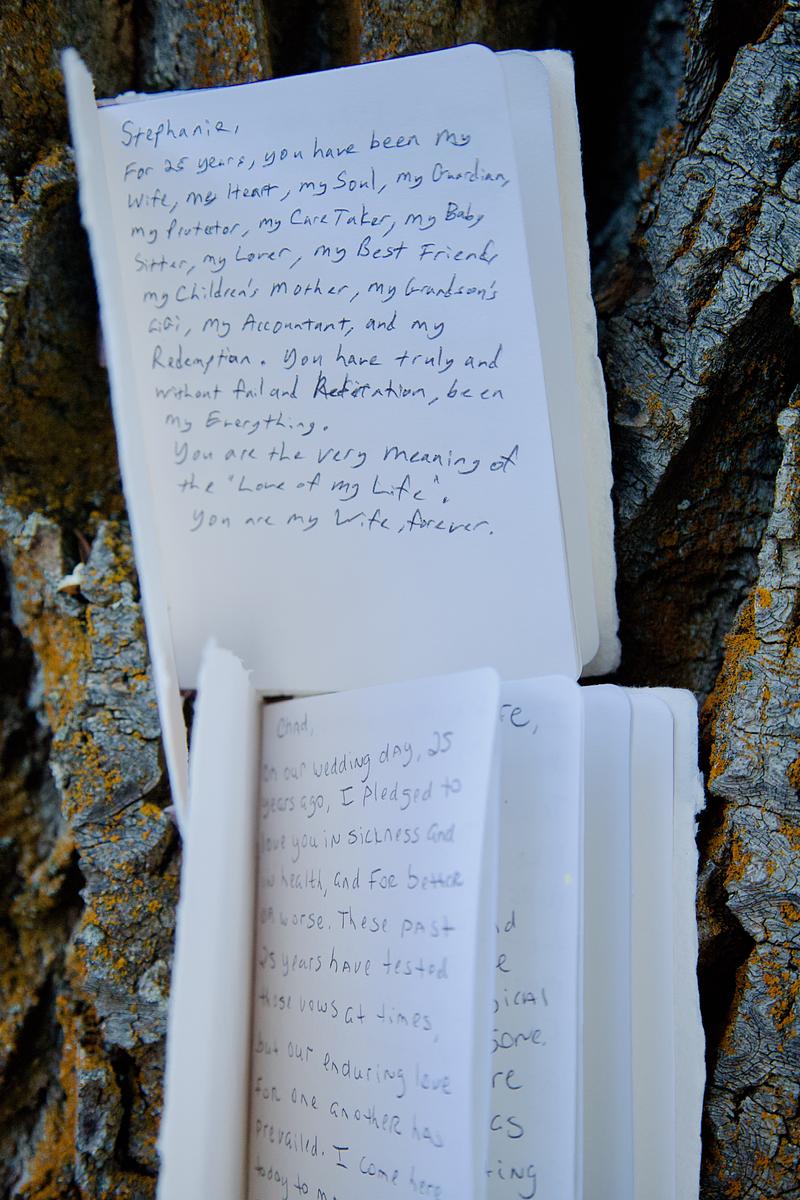 Stephanie,
For 25 years, you have been my
Wife, my Heart, my Soul, my Guardian,
my Protector, my Care Taker, my Baby
Sitter, my Lover, my Best Friend,
my Children's Mother, my Grandson's
GiGi, my Accountant, and my
Redemption. You have truly and
without fail and, been
my Everything.
You are the very meaning of
the "Love of my Life".
You are my Wife, forever.
Chad,
On our wedding day, 25
years ago, I pledged to
love you in sickness and
in health, and for better
or worse. These past
25 years have tested
those vows at times,
but our enduring love
for one another has
prevailed. I come here
today to